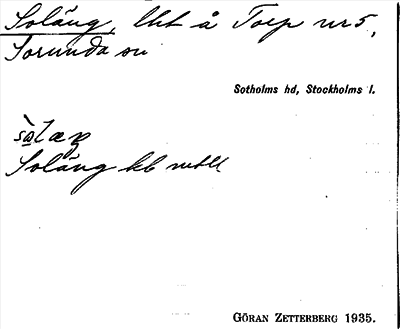 Soläng, lht å Torp nr 5,
Sorunda sn
Sotholms hd, Stockholms l.
Soläng kb
GÖRAN ZETTERBERG 1935.